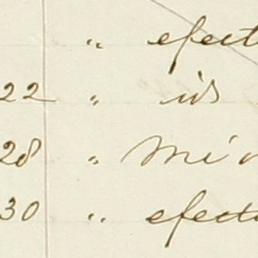 " efect
22 " ids
28 " Mi
30 " efect